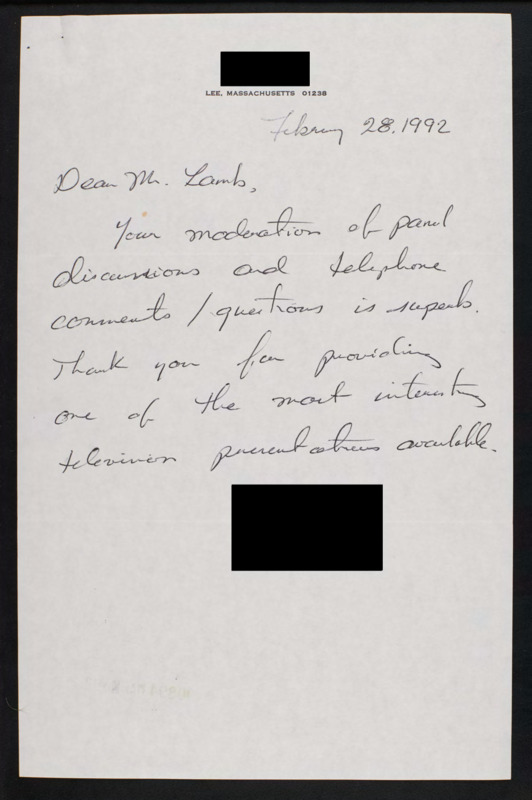 LEE, MASSACHUSETTS 01238
February 28, 1992
Dear Mr. Lamb,
Your moderation of panel
discussions and telephone
comments / questions is superb.
Thank you for providing
one of the most interesting
television presentations available.